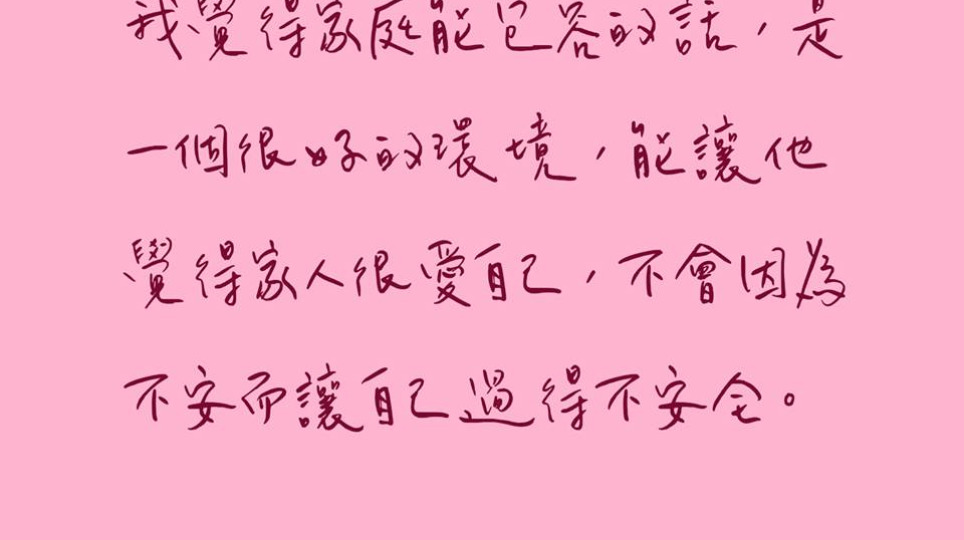 我覺得家庭能包容的話，是
一個很好的環境，能讓他
覺得家人很愛自己，不會因為
不安而讓自己過得不安全。